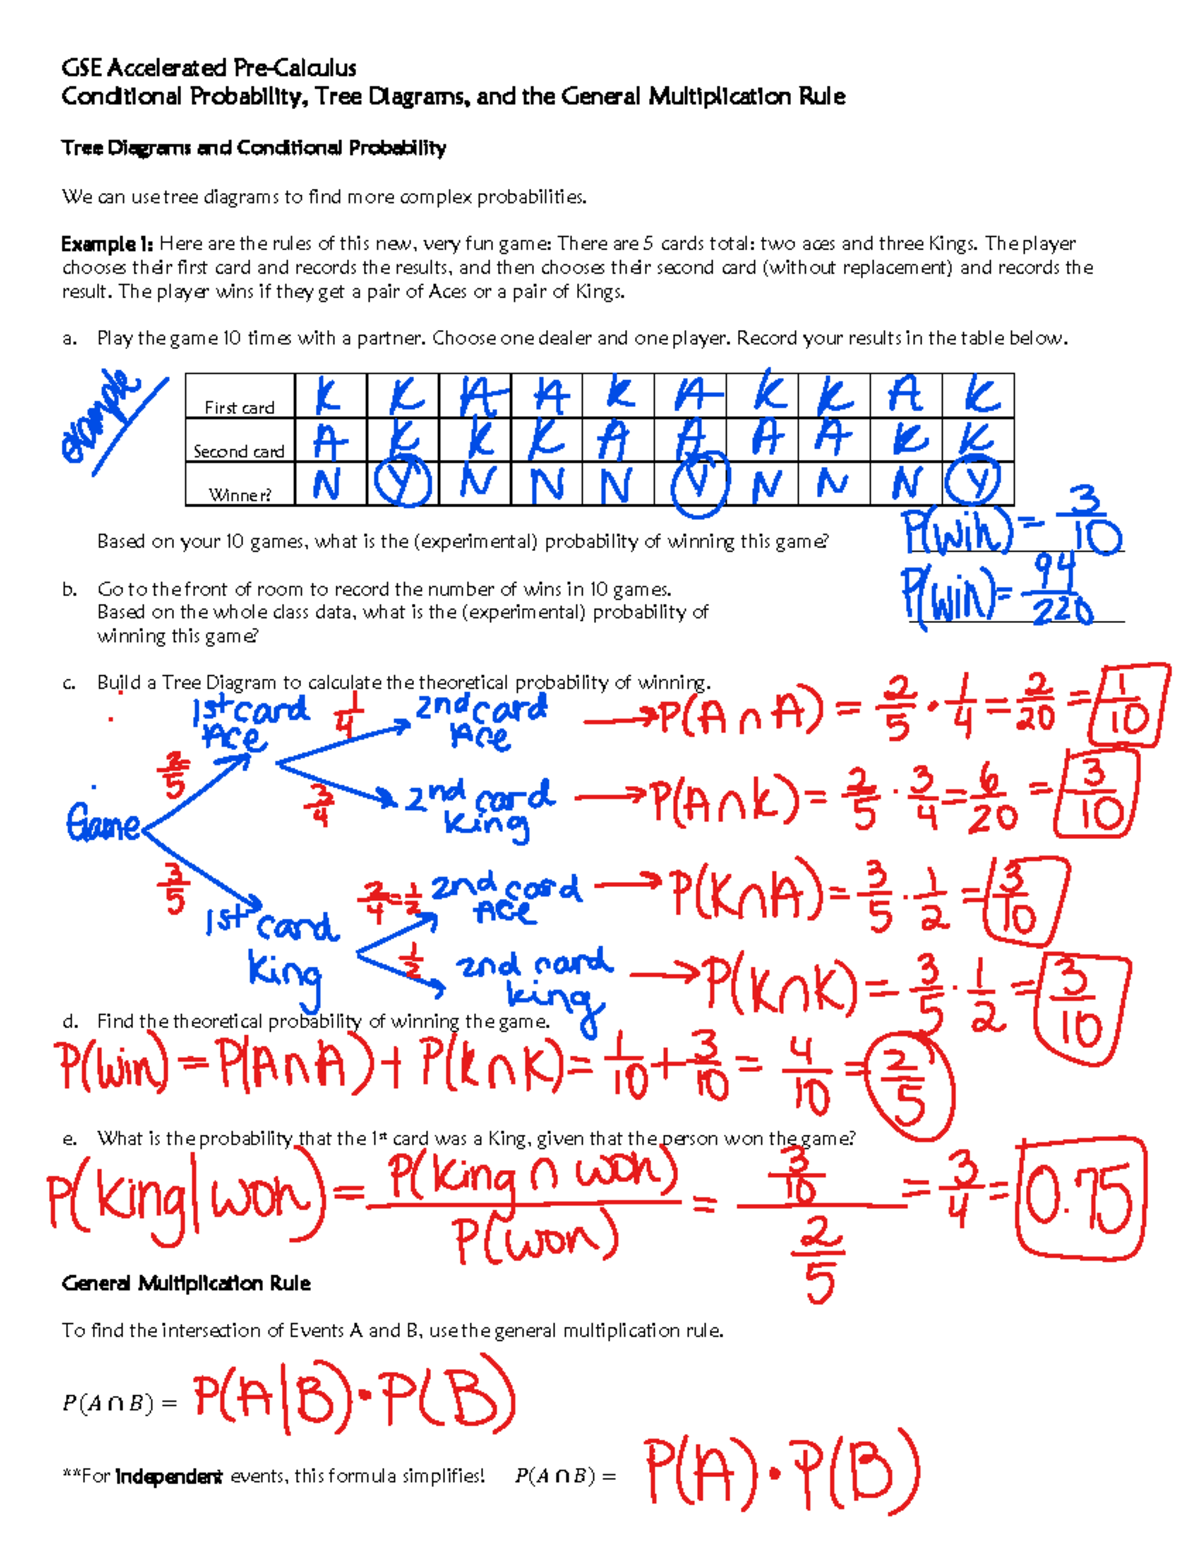 GSE Accelerated Pre-Calculus
Conditional Probability, Tree Diagrams, and the General Multiplication Rule
Tree Diagrams and Conditional Probability
We can use tree diagrams to find more complex probabilities.
Example 1: Here are the rules of this new, very fun game: There are 5 cards total: two aces and three Kings. The player
chooses their first card and records the results, and then chooses their second card (without replacement) and records the
result. The player wins if they get a pair of Aces or a pair of Kings.
a. Play the game 10 times with a partner. Choose one dealer and one player. Record your results in the table below.
example
First card K K A A K A K K A K
Second card A K K K A A A A K K
Winner? N Y N N N Y N N N Y
Based on your 10 games, what is the (experimental) probability of winning this game? P(win) = 3/10
b. Go to the front of room to record the number of wins in 10 games.
Based on the whole class data, what is the (experimental) probability of P(win) = 94/220
winning this game?
c. Build a Tree Diagram to calculate the theoretical probability of winning.
Game
2/5 1st card Ace
1/4 2nd card Ace → P(A ∩ A) = 2/5 · 1/4 = 2/20 = 1/10
3/4 2nd card King → P(A ∩ K) = 2/5 · 3/4 = 6/20 = 3/10
3/5 1st card King
2/4 = 1/2 2nd card Ace → P(K ∩ A) = 3/5 · 1/2 = 3/10
1/2 2nd card King → P(K ∩ K) = 3/5 · 1/2 = 3/10
d. Find the theoretical probability of winning the game.
P(win) = P(A ∩ A) + P(K ∩ K) = 1/10 + 3/10 = 4/10 = 2/5
e. What is the probability that the 1st card was a King, given that the person won the game?
P(King | won) = P(King ∩ won) / P(won) = 3/10 / 2/5 = 3/4 = 0.75
General Multiplication Rule
To find the intersection of Events A and B, use the general multiplication rule.
P(A ∩ B) = P(A|B) · P(B)
**For Independent events, this formula simplifies! P(A ∩ B) = P(A) · P(B)